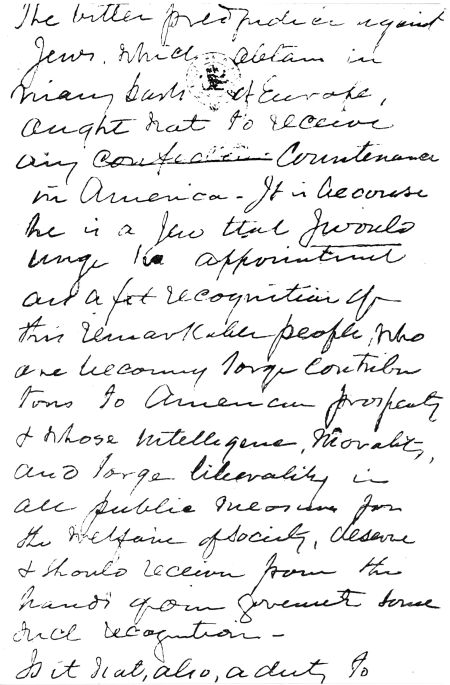 The bitter predjudice against
Jews, which obtain in
many parts of Europe,
ought not to receive
any countenance
in America - It is because
he is a Jew that I would
urge his appointment
as a fit recognition of
this remarkable people, who
are becoming large contribu
tors to American prosperity
& whose intelligence, morality,
and large liberality in
all public measures for
the welfare of society, deserve
& should receive from the
hands of our government some
such recognition -
Is it not, also, a duty to